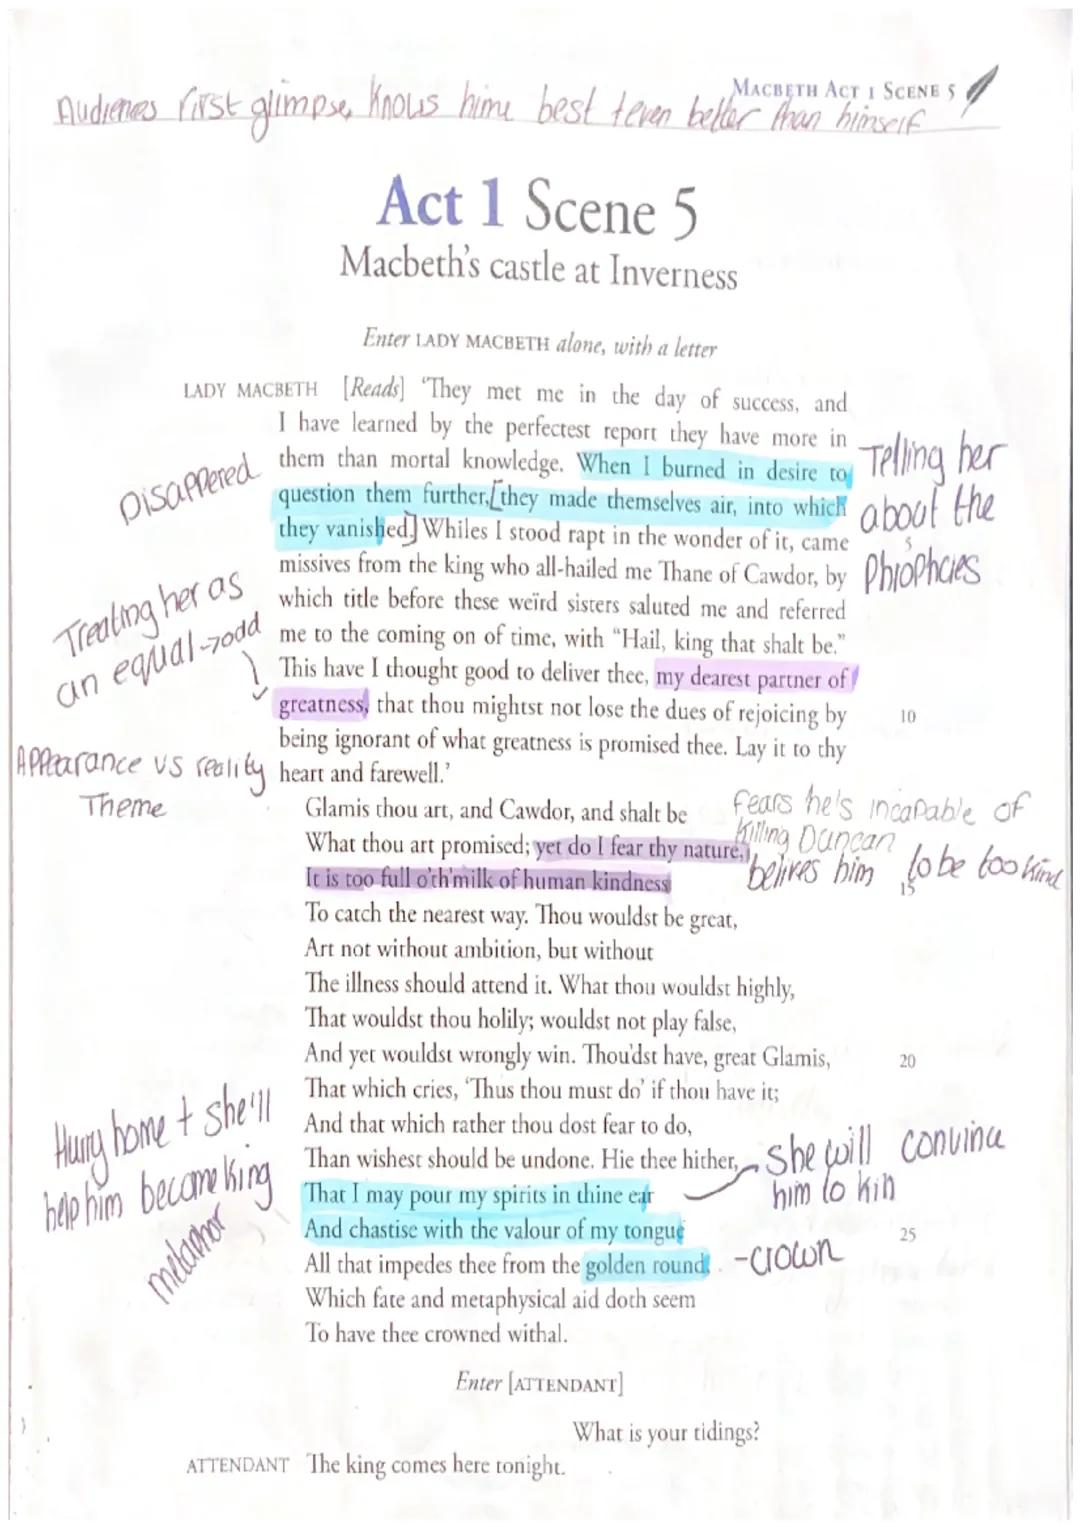 MACBETH ACT 1 SCENE 5
Audiences first glimpse, knows hime best + even better than himself
Act 1 Scene 5
Macbeth's castle at Inverness
Enter LADY MACBETH alone, with a letter
LADY MACBETH [Reads] 'They met me in the day of success, and
I have learned by the perfectest report they have more in
them than mortal knowledge. When I burned in desire to
question them further, [they made themselves air, into which
they vanished.] Whiles I stood rapt in the wonder of it, came
missives from the king who all-hailed me Thane of Cawdor, by
5
which title before these weïrd sisters saluted me and referred
me to the coming on of time, with "Hail, king that shalt be."
This have I thought good to deliver thee, my dearest partner of
greatness, that thou mightst not lose the dues of rejoicing by 10
being ignorant of what greatness is promised thee. Lay it to thy
heart and farewell.'
Disappered
Telling her
about the
Phrophcies
Treating her as
an equal → odd
Appearance vs reality
Theme
Glamis thou art, and Cawdor, and shalt be
What thou art promised; yet do I fear thy nature,
It is too full o'th'milk of human kindness 15
To catch the nearest way. Thou wouldst be great,
Art not without ambition, but without
The illness should attend it. What thou wouldst highly,
That wouldst thou holily; wouldst not play false,
And yet wouldst wrongly win. Thou'dst have, great Glamis, 20
That which cries, 'Thus thou must do' if thou have it;
And that which rather thou dost fear to do,
Than wishest should be undone. Hie thee hither,
That I may pour my spirits in thine ear
And chastise with the valour of my tongue 25
All that impedes thee from the golden round,
Which fate and metaphysical aid doth seem
To have thee crowned withal.
fears he's incapable of
killing Duncan
belives him to be too kind
Hurry home + she'll
help him become king
metaphor
she will convince
him to kill
- crown
Enter [ATTENDANT]
What is your tidings?
ATTENDANT The king comes here tonight.